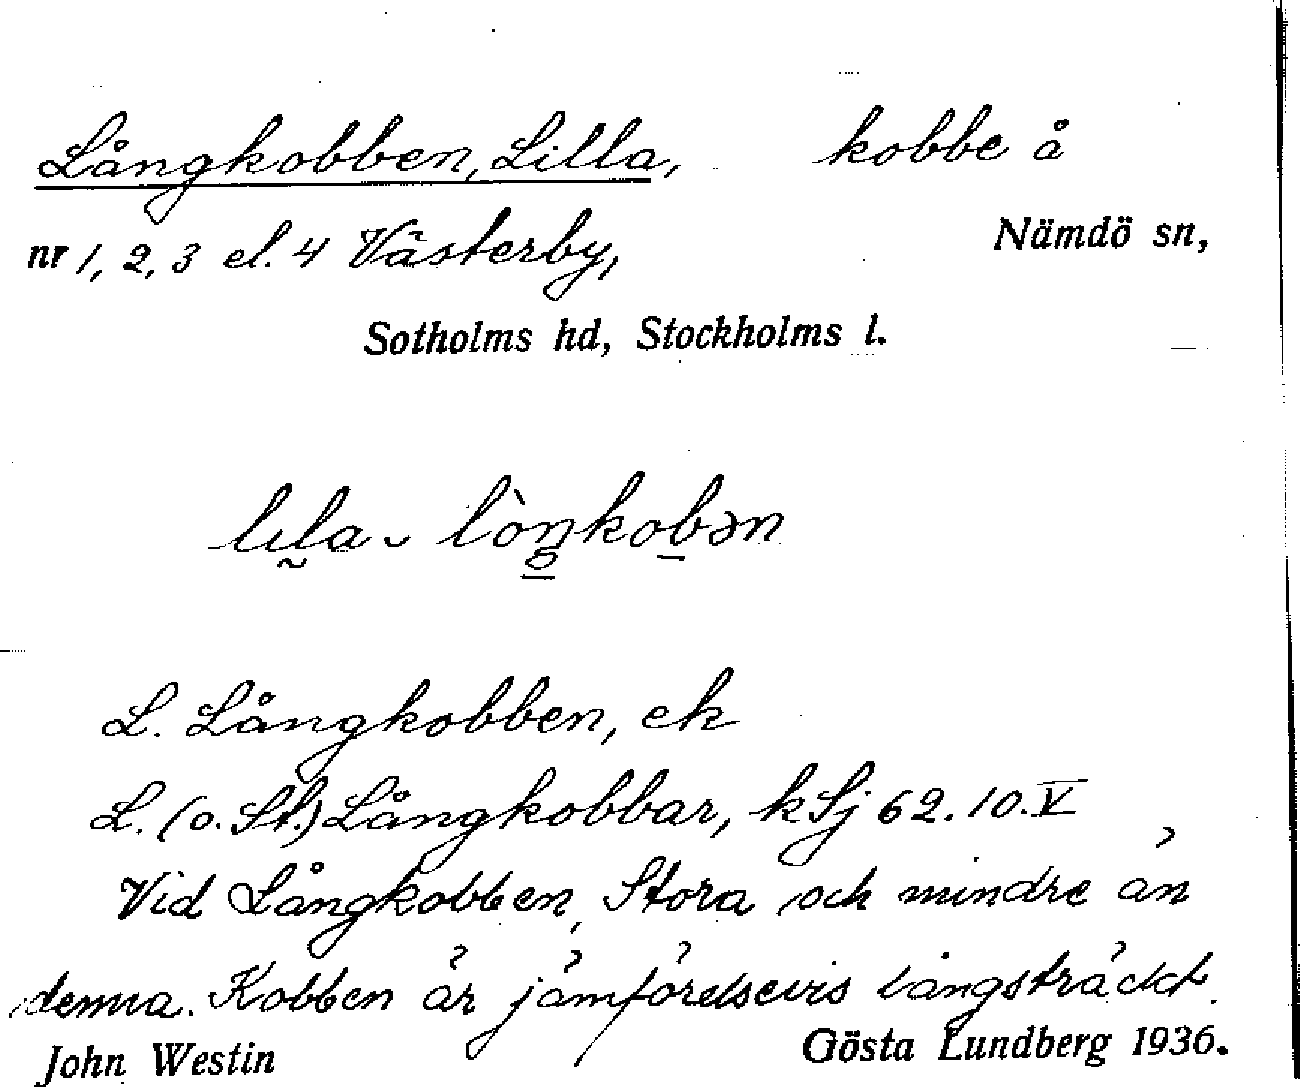 Långkobben, Lilla, kobbe å
nr 1, 2, 3 el. 4 Västerby, Nämdö sn,
Sotholms hd, Stockholms l.
lɪla ⌣ lòŋkobən
L. Långkobben, ek
L. (o. St.) Långkobbar, kSj 62. 10. V
Vid Långkobben, Stora och mindre än
denna. Kobben är jämförelsevis långsträckt.
John Westin Gösta Lundberg 1936.